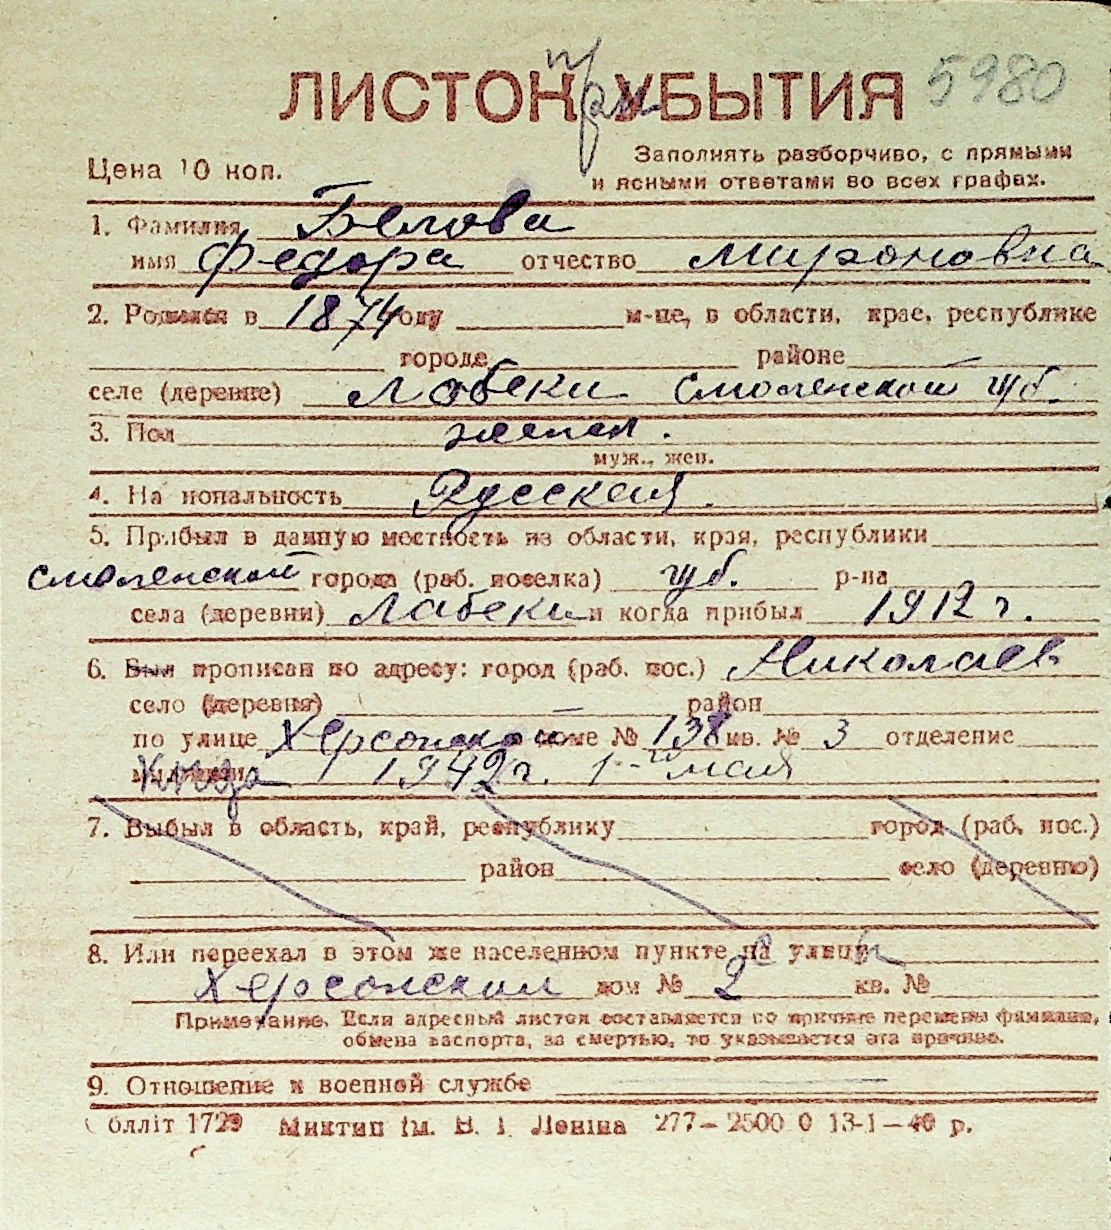 ЛИСТОК УБЫТИЯ 5980
при
Цена 10 коп.
Заполнять разборчиво, с прямыми
и ясными ответами во всех графах.
1. Фамилия Белова
имя Федора отчество Мироновна
2. Родился в 1874 году м-це, в области, крае, республике
городе районе
селе (деревне) Лабеки Смоленской губ.
3. Пол женск.
муж., жен.
4. На иональность Русская.
5. Прибыл в данную местность из области, края, республики
Смоленской города (раб. поселка) губ. р-на
села (деревни) Лабеки и когда прибыл 1912 г.
6. Был прописан по адресу: город (раб. пос.) Николаев
село (деревня) район
по улице Херсонской доме № 138 кв. № 3 отделение
милиции 1942 г. 1-го мая
7. Выбыл в область, край, республику город (раб. пос.)
район село (деревню)
8. Или переехал в этом же населенном пункте на улицу
Херсонская дом № 2 кв. №
Примечание. Если адресный листок составляется по причине перемены фамилии,
обмена паспорта, за смертью, то указывается эта причина.
9. Отношение к военной службе
блліт 1729 Миктип ім. В. І. Леніна 277—2500 0 13-1—40 р.